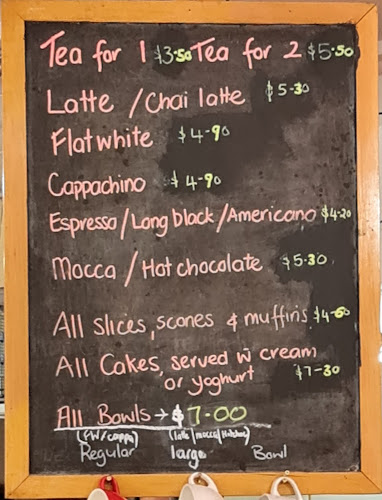 Tea for 1 $3.50 Tea for 2 $5.50
Latte / Chai latte $5.30
Flat white $4-90
Cappachino $4-90
Espresso / Long black / Americano $4-20
Mocca / Hot chocolate $5-30
All slices, scones & muffins $4-60
All Cakes, served w cream
or yoghurt $7-30
All Bowls → $7.00
(FW/cappa) (latte/mocca/Hotchoc)
Regular large Bowl